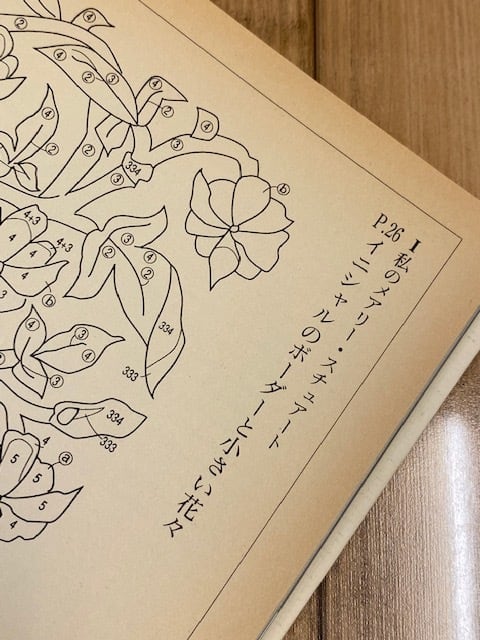 P.26 Ⅰ 私のメアリー・スチュアート
イニシャルのボーダーと小さい花々
②
④
②
③
④
④
②
④
②
②
③
334
③
ⓑ
4+3
4
4+3
4
4
4
②
③
④
②
ⓑ
3
334
333
③
④
③
334
333
4
ⓐ
5
5
5
4